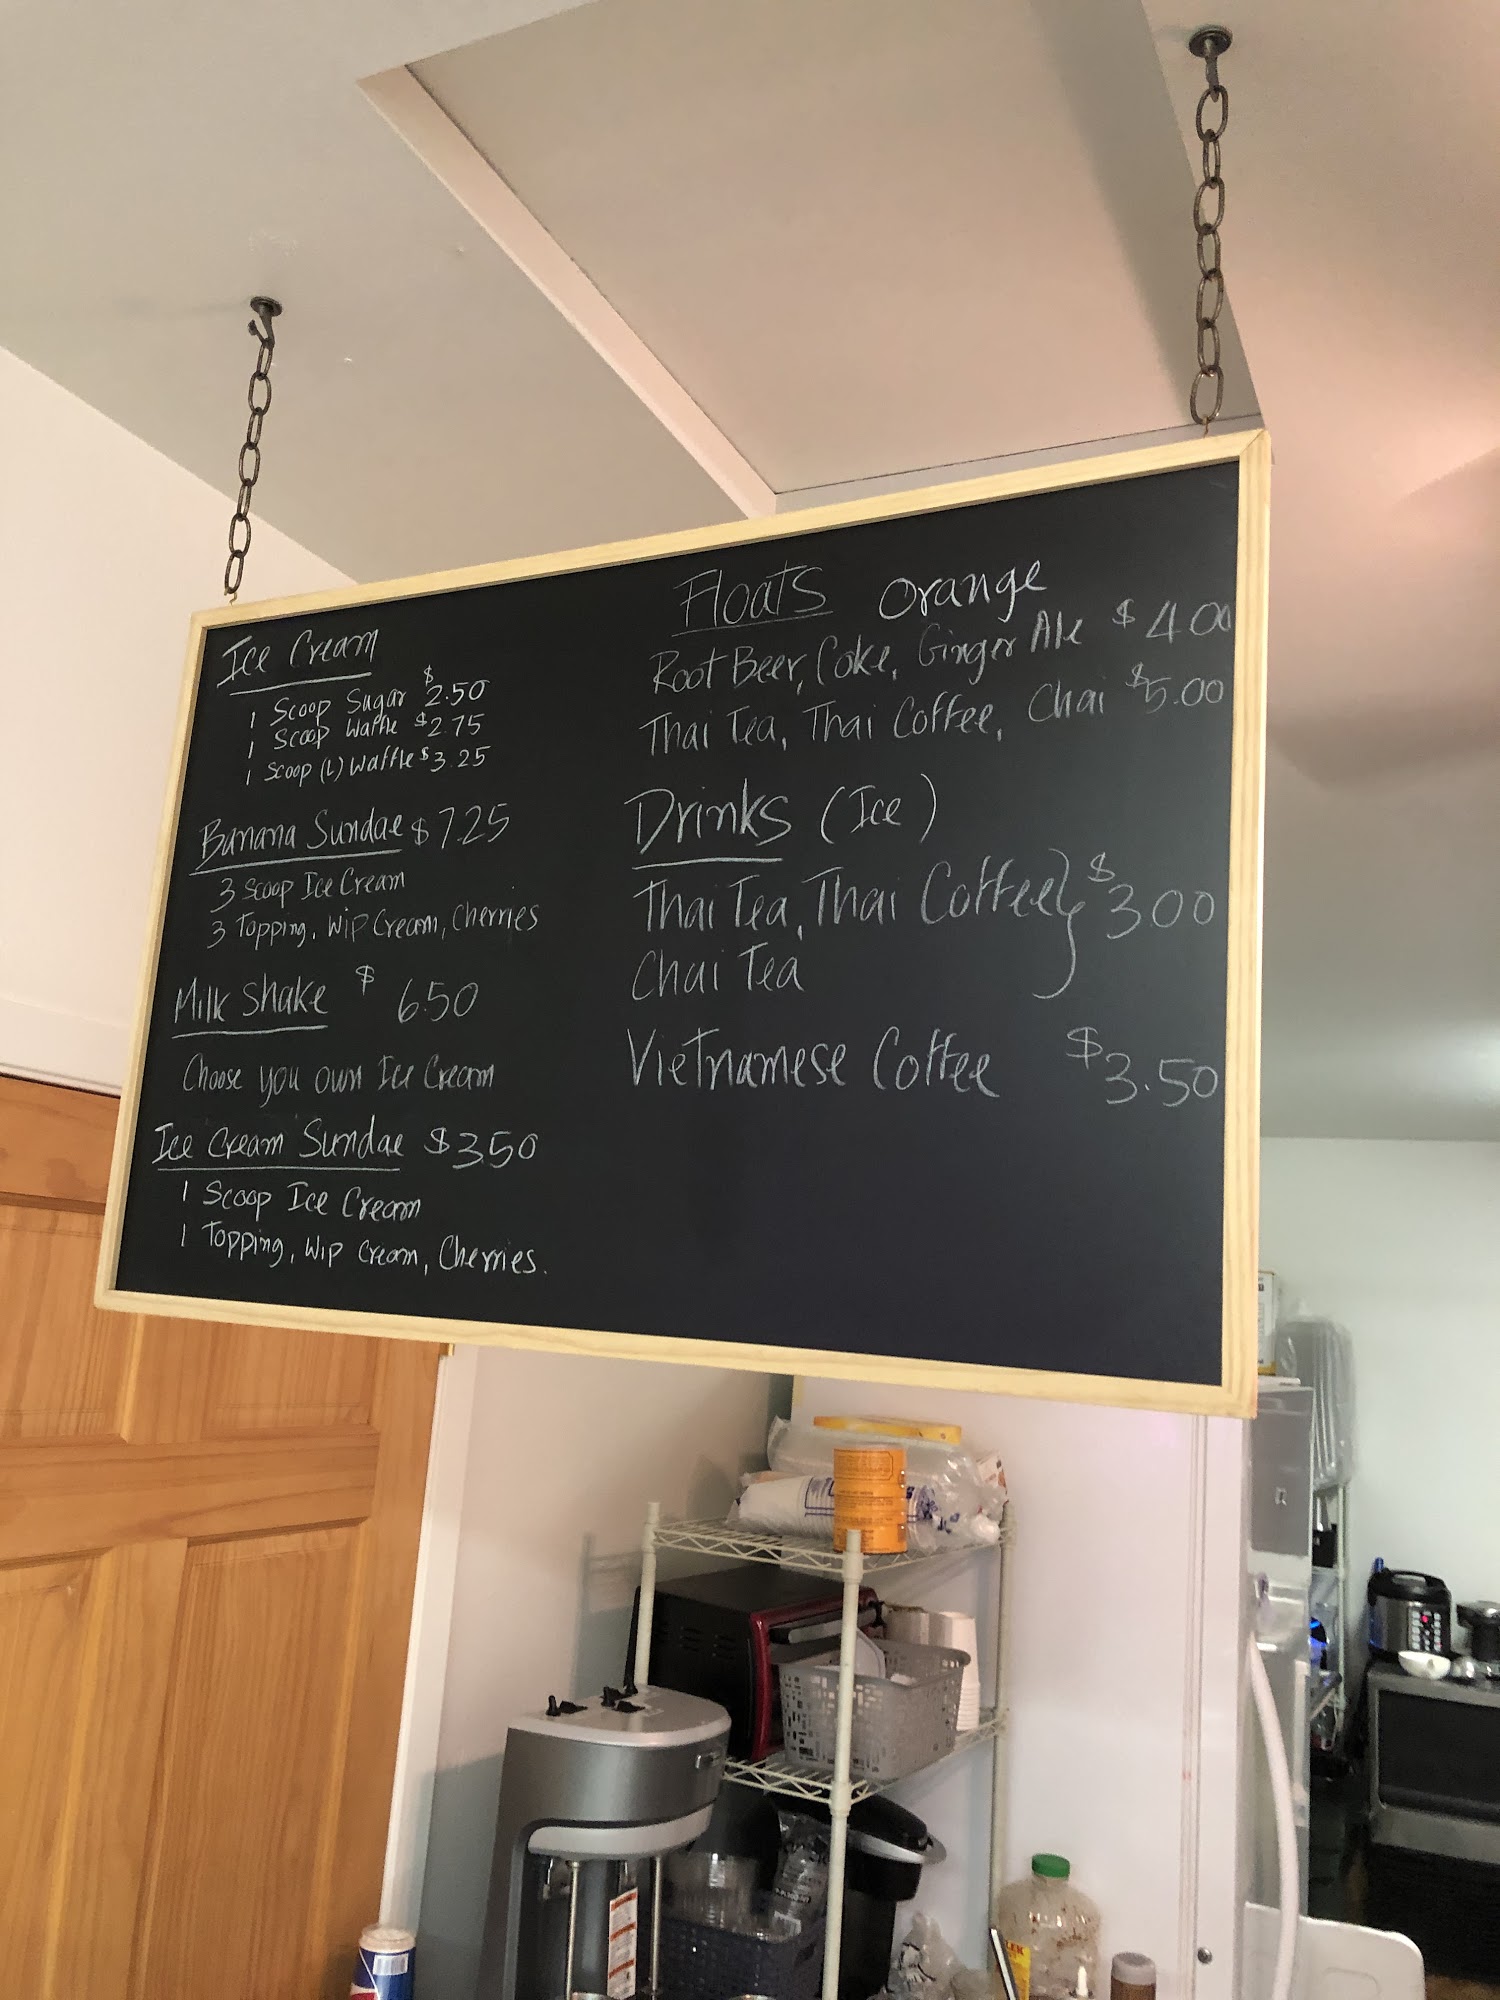 Ice Cream
1 Scoop Sugar $2.50
1 Scoop Waffle $2.75
1 Scoop (L) Waffle $3.25
Banana Sundae $7.25
3 Scoop Ice Cream
3 Topping, Wip Cream, Cherries
Milk Shake $6.50
Choose you own Ice Cream
Ice Cream Sundae $3.50
1 Scoop Ice Cream
1 Topping, Wip Cream, Cherries.
Floats Orange
Root Beer, Coke, Ginger Ale $4.00
Thai Tea, Thai Coffee, Chai $5.00
Drinks (Ice)
Thai Tea, Thai Coffee } $3.00
Chai Tea
Vietnamese Coffee $3.50